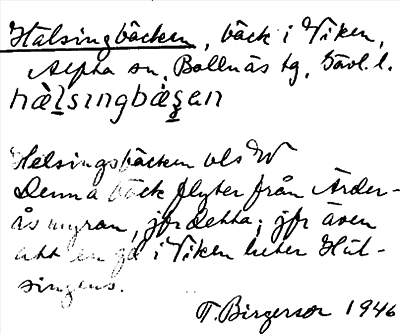 Hälsingbäcken, bäck i Viken,
Alfta sn, Bollnäs tg, Gävl. l.
hæ̀lsingbæ̀ʂan
Helsingsbäcken bls W
Denna bäck flyter från Arder-
åsmyran, jfr detta; jfr även
att en gd i Viken heter Häl-
singens.
T. Birgersor 1946